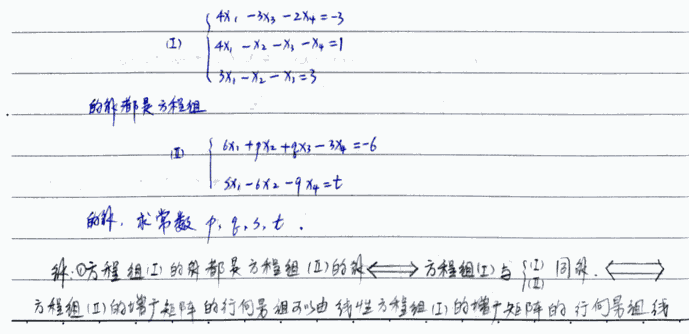 { 4x₁ -3x₃ -2x₄ = -3
(I) 4x₁ -x₂ -x₃ -x₄ = 1
3x₁ -x₂ -x₃ = 3
的解都是方程组
(II) { 6x₁ + px₂ + qx₃ - 3x₄ = -6
sx₁ - 6x₂ - 9x₄ = t
的解, 求常数 p, q, s, t .
解: ①方程组(I)的解都是方程组(II)的解 ⟺ 方程组(I)与 { (I) (II) 同解. ⟺
方程组(II)的增广矩阵的行向量组可以由线性方程组(I)的增广矩阵的行向量组线